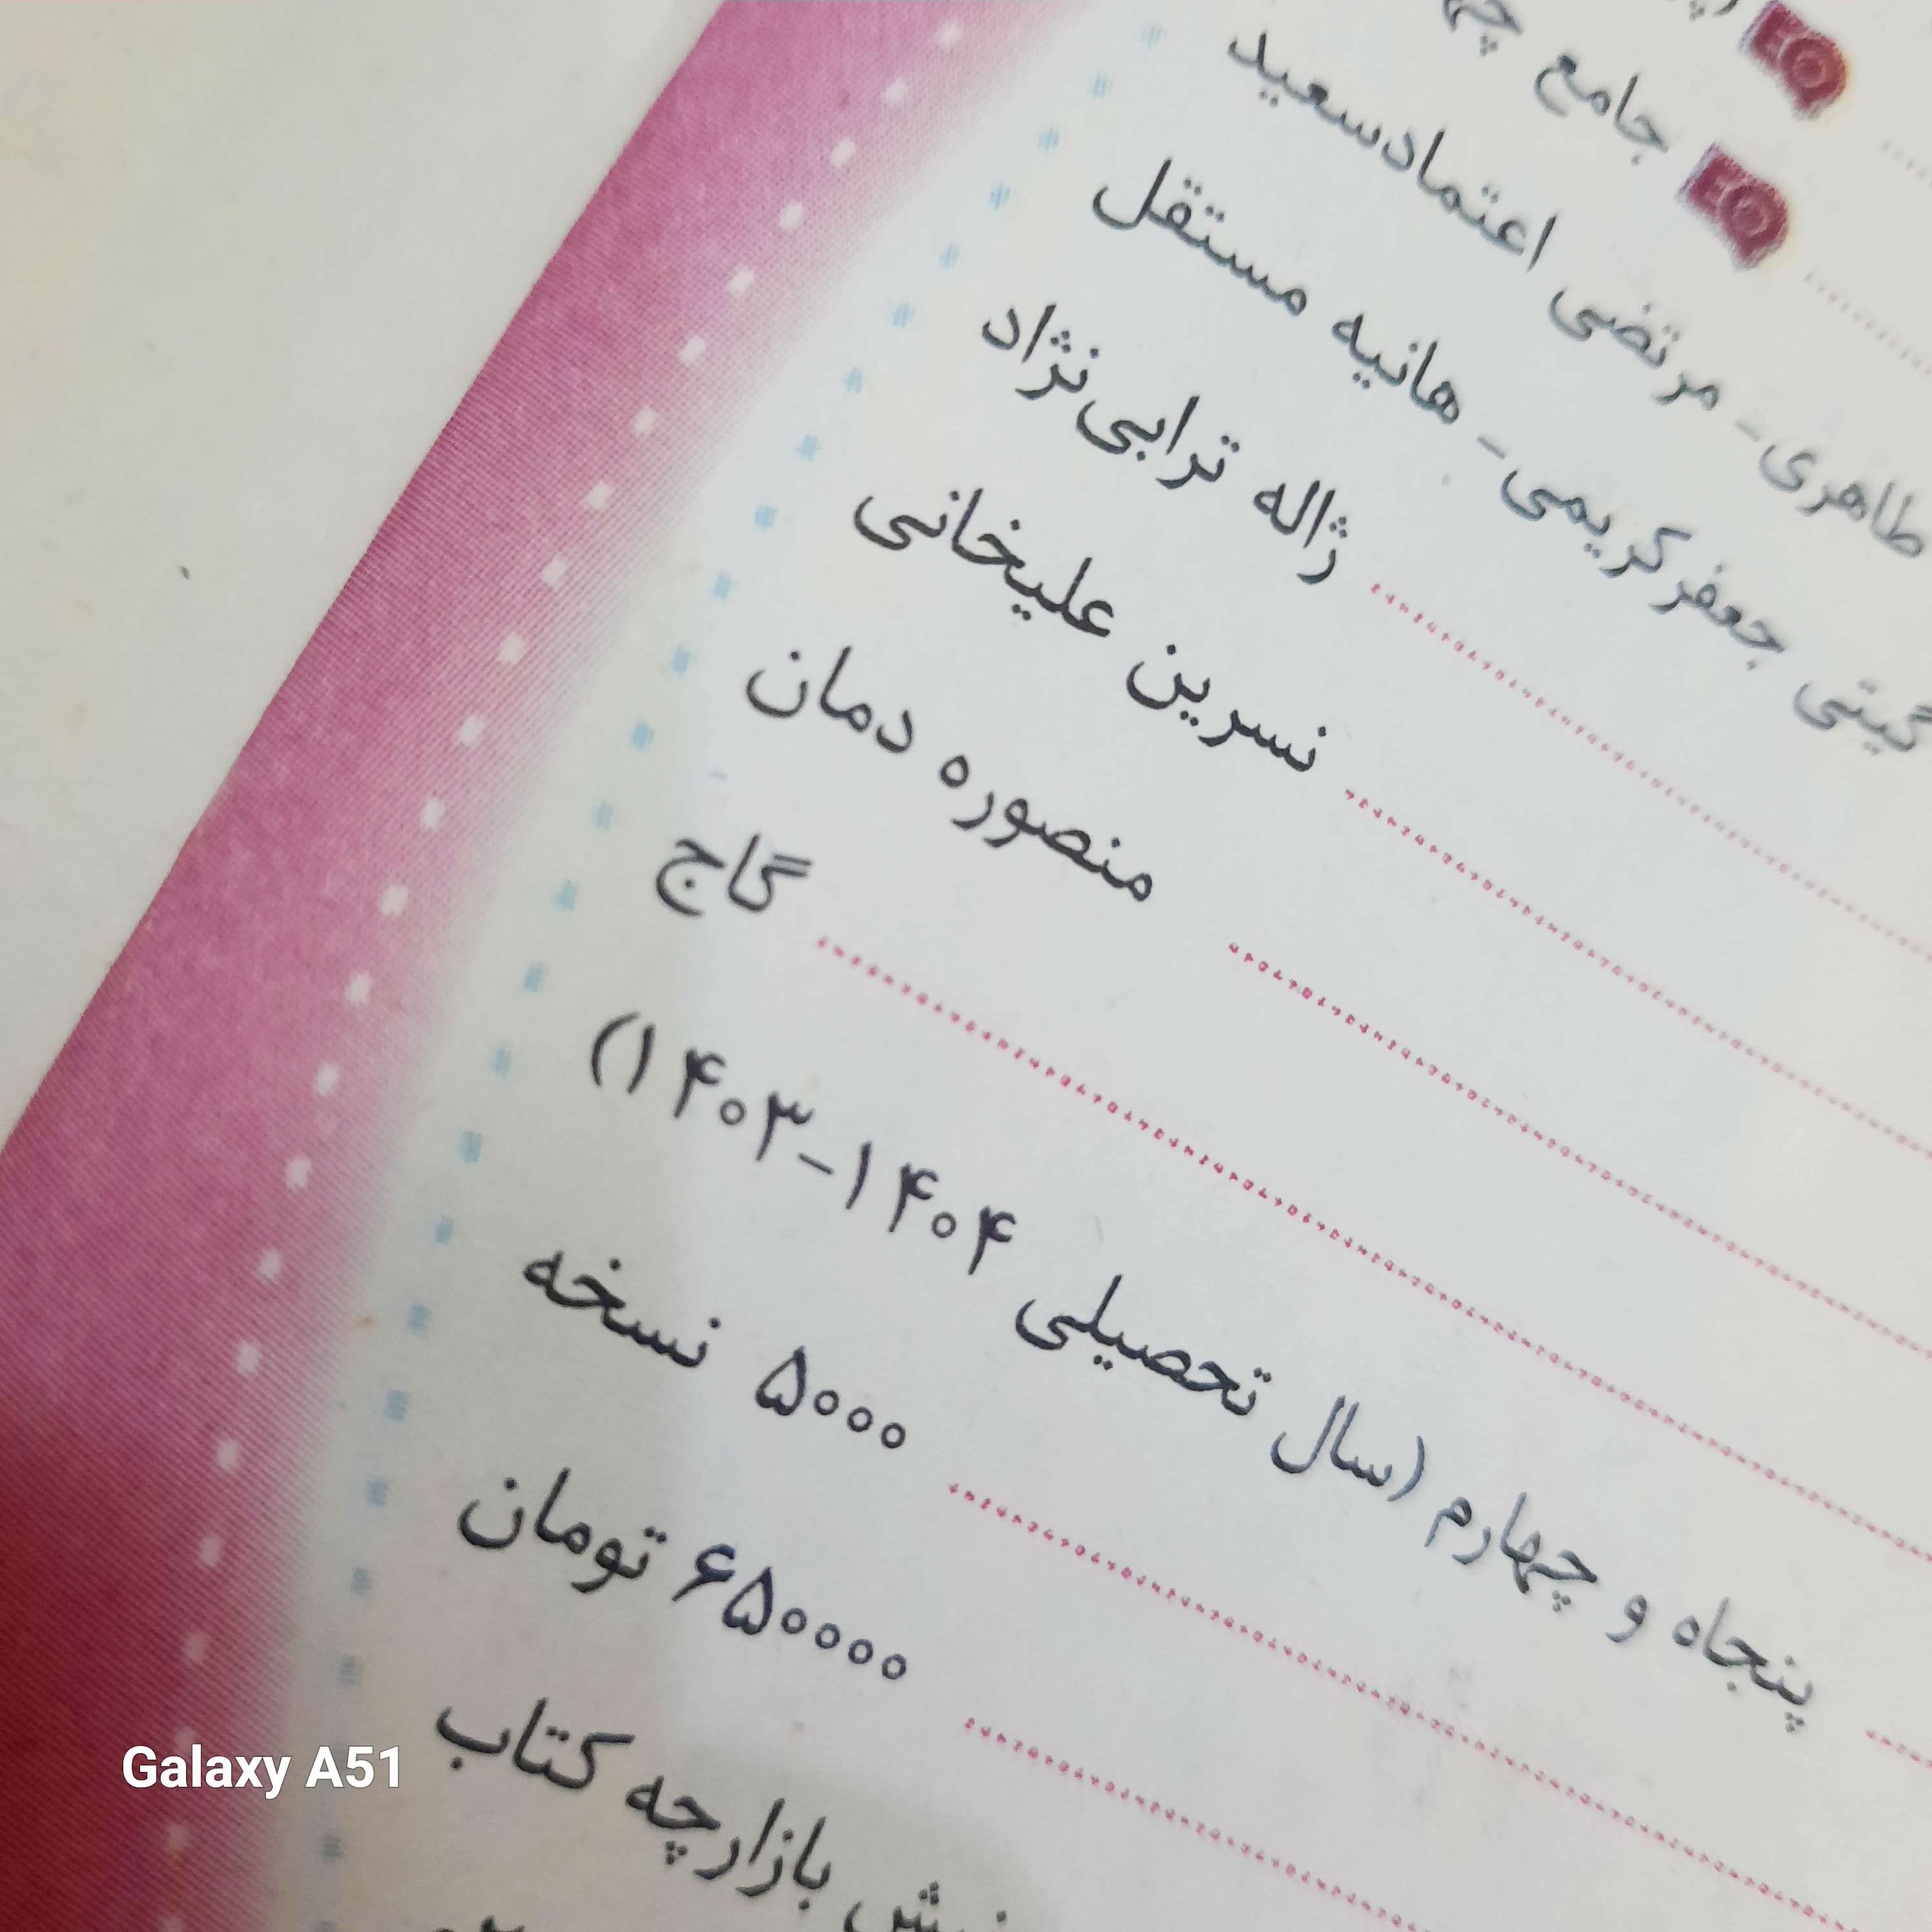 EQ
EQ جامع
طاهری - مرتضی اعتمادسعید
گیتی جعفرکریمی - هانیه مستقل
ژاله ترابی‌نژاد
نسرین علیخانی
منصوره دمان
گاج
پنجاه و چهارم (سال تحصیلی ۱۴۰۴-۱۴۰۳)
۵۰۰۰ نسخه
۶۵۰۰۰۰ تومان
بازارچه کتاب
Galaxy A51